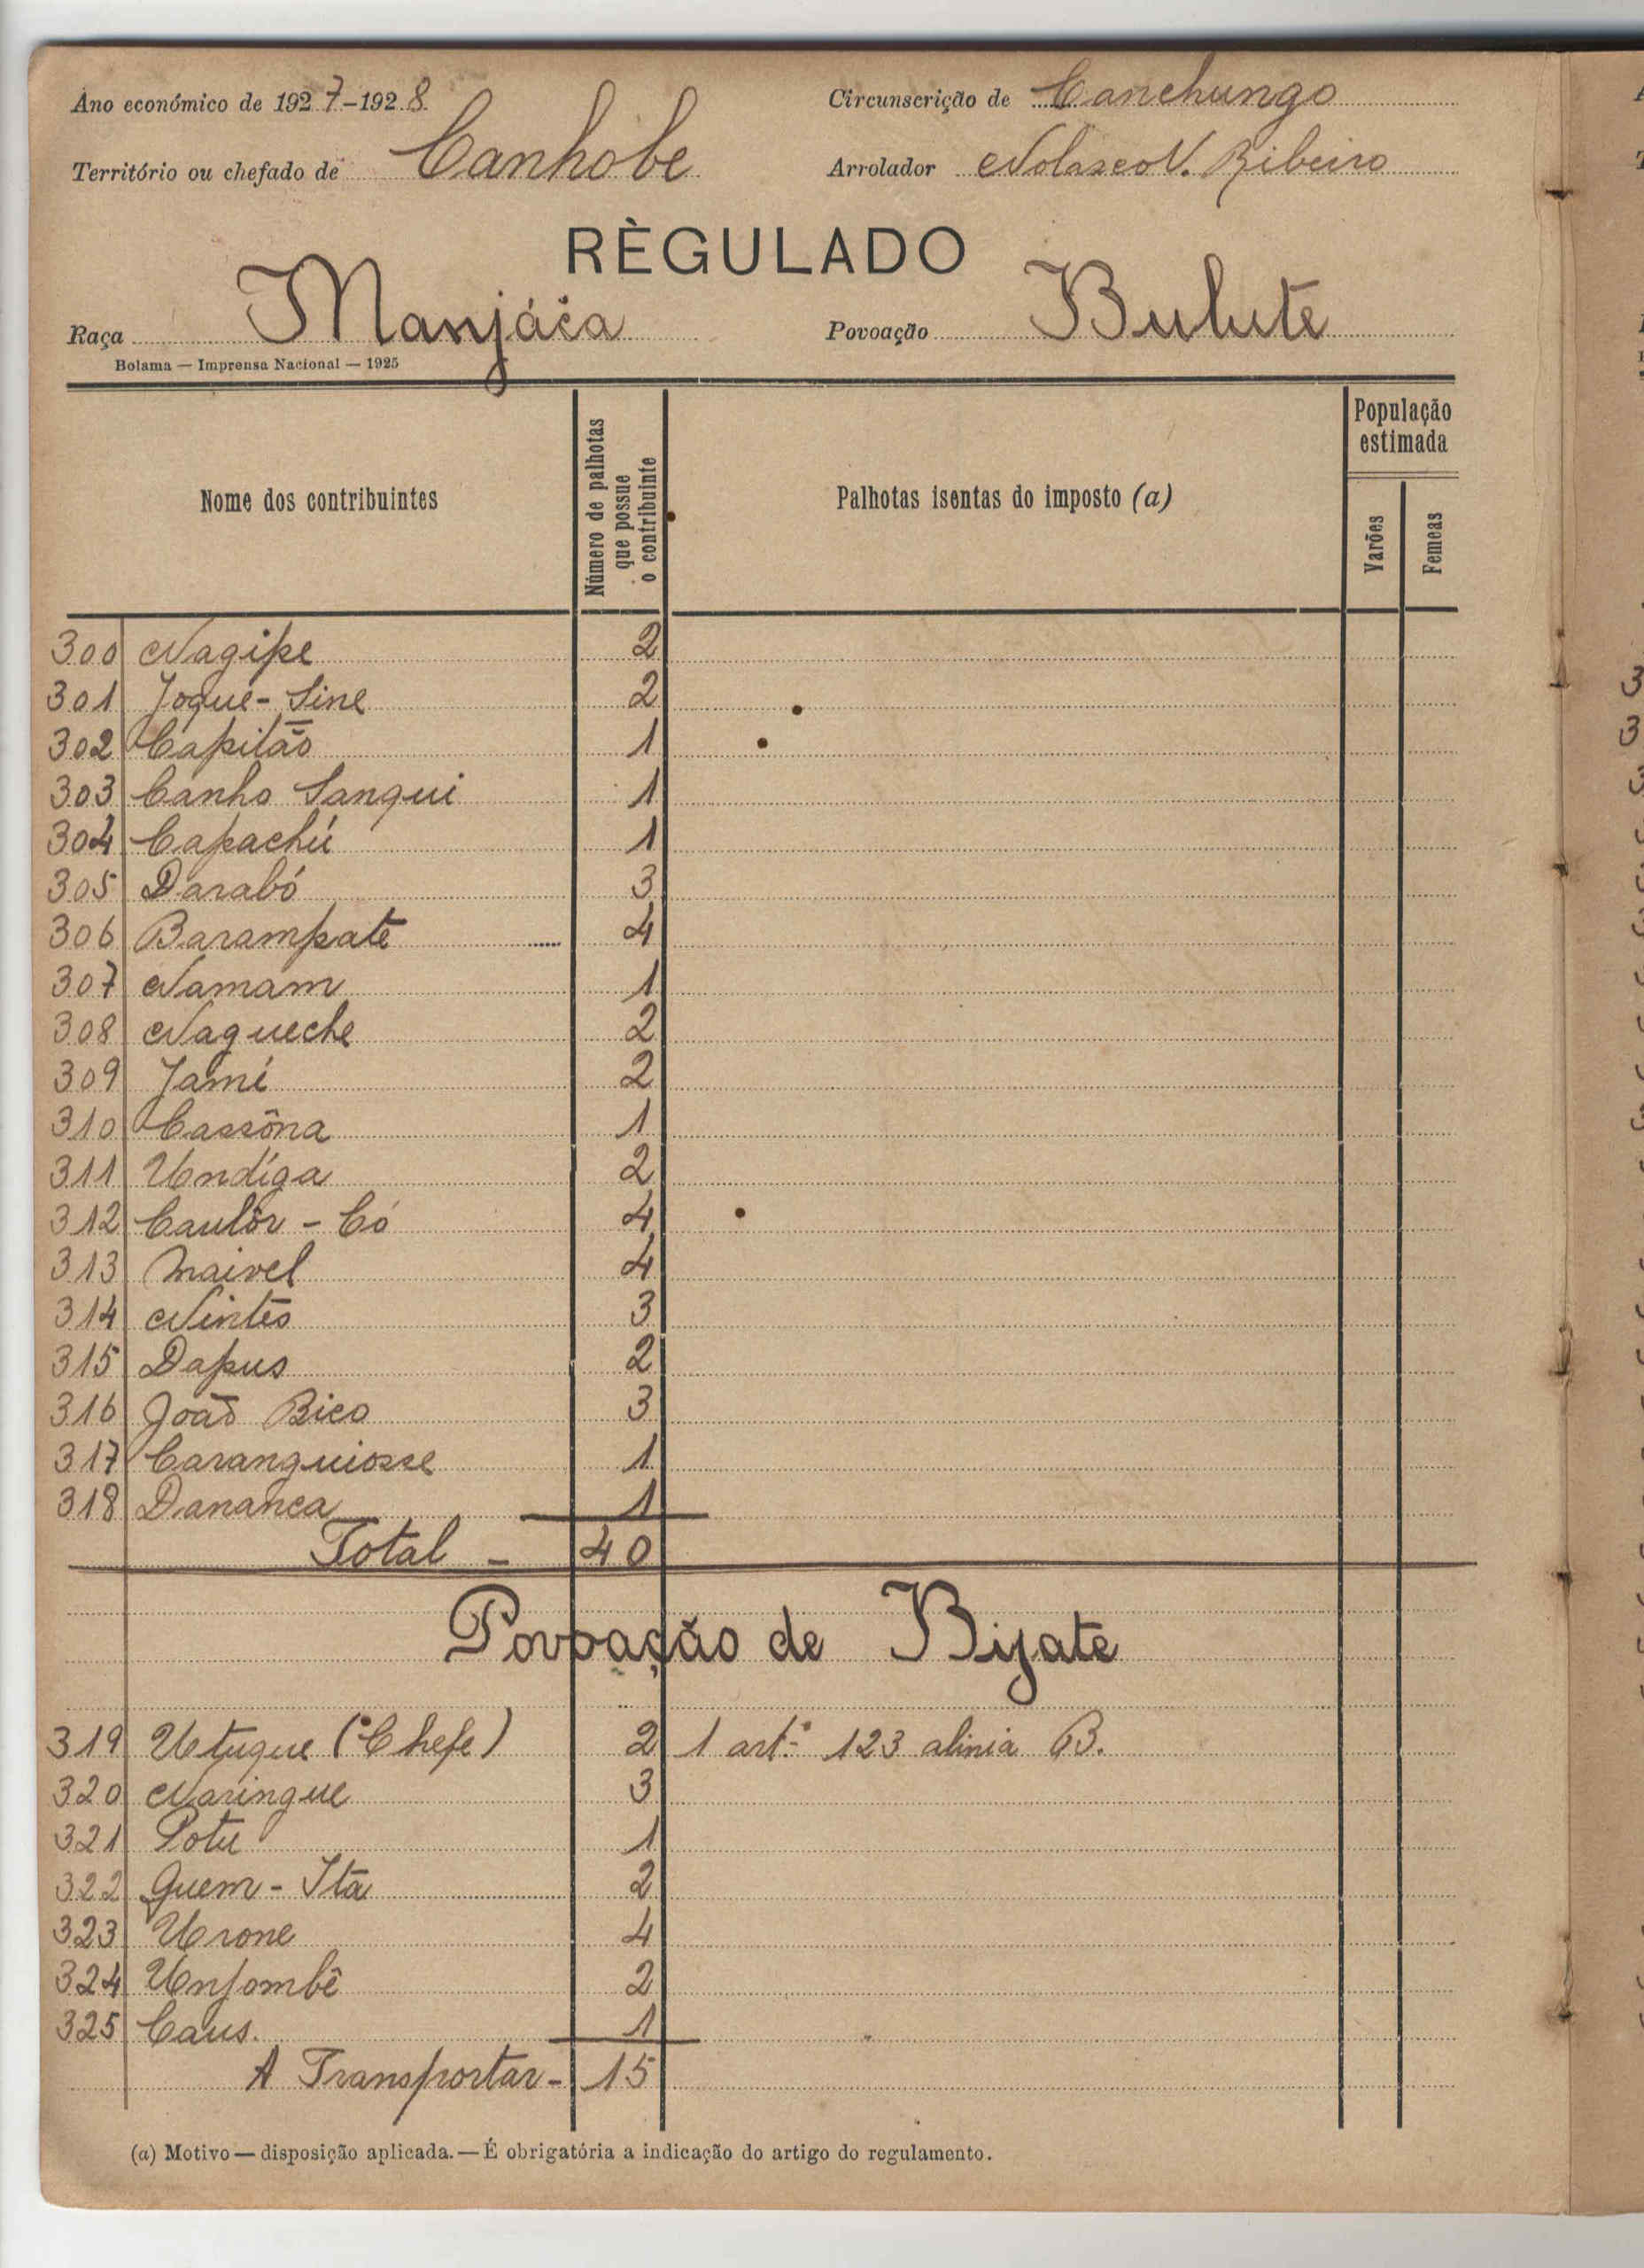 Ano económico de 1927-1928
Circunscrição de Canchungo
Território ou chefado de Canhobe
Arrolador Nolasco V. Ribeiro
RÈGULADO
Raça Manjáca
Povoação Bulute
Bolama — Imprensa Nacional — 1925
Nome dos contribuintes
Número de palhotas que possue o contribuinte
Palhotas isentas do imposto (a)
População estimada
Varões
Femeas
300 Nagipe 2
301 Joque-Sine 2
302 Capitão 1
303 Canho Sanqui 1
304 Capachú 1
305 Darabó 3
306 Barampate 4
307 Namam 1
308 Naqueche 2
309 Jamé 2
310 Cassôna 1
311 Undíga 2
312 Caulôr - Có 4
313 Maivel 4
314 Nintes 3
315 Dapus 2
316 João Bico 3
317 Caranguiosse 1
318 Dananca 1
Total - 40
Povoação de Bijate
319 Utuque (Chefe) 2 1 art.º 123 alinia B.
320 Naringue 3
321 Potu 1
322 Quem-Ita 2
323 Urone 4
324 Unjombê 2
325 Caus. 1
A Transportar - 15
(a) Motivo — disposição aplicada. — É obrigatória a indicação do artigo do regulamento.